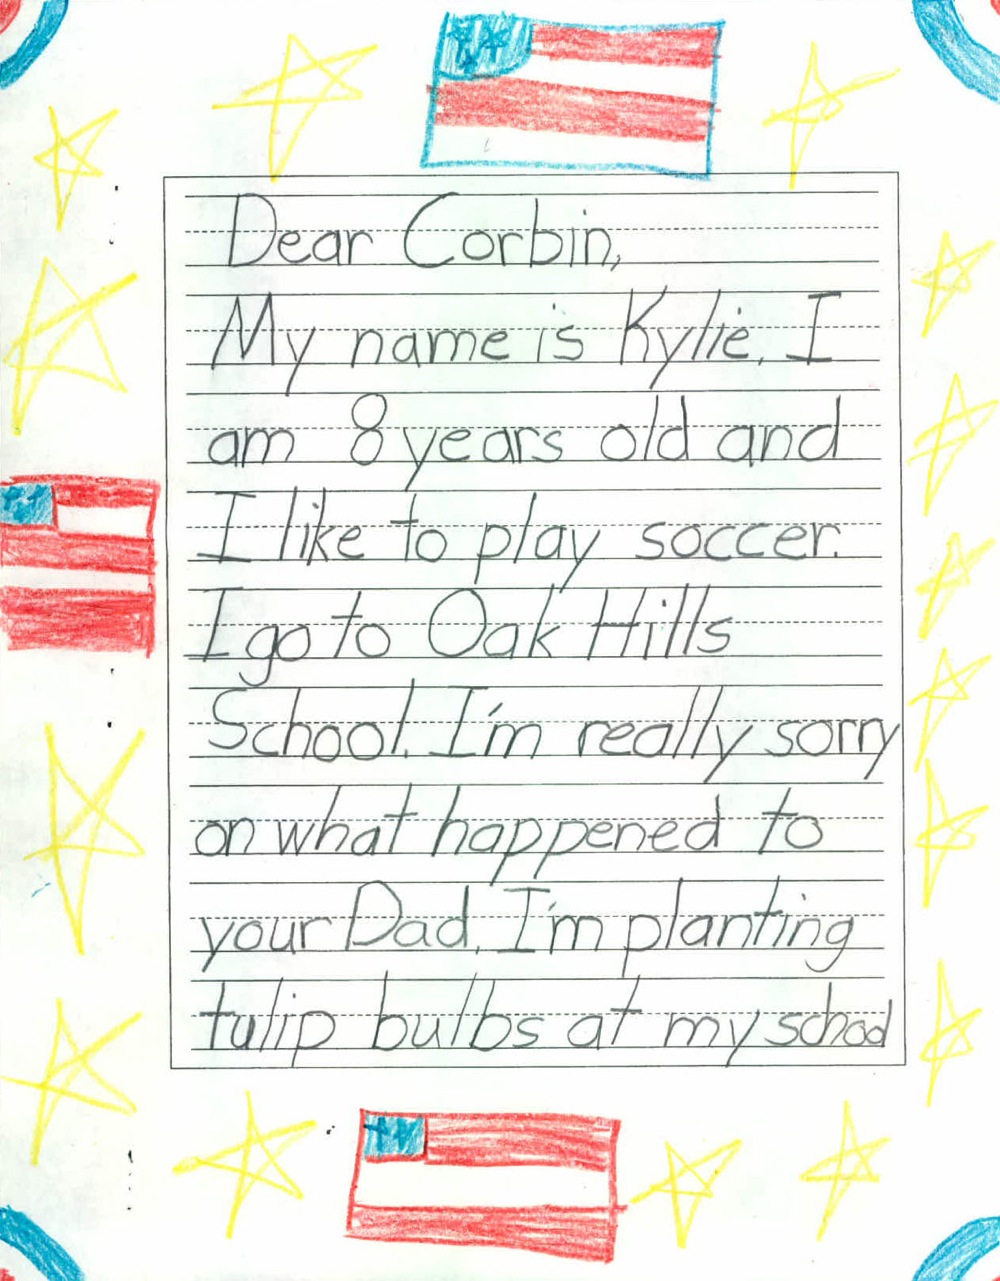 Dear Corbin,
My name is Kylie. I
am 8 years old and
I like to play soccer.
I go to Oak Hills
School. I'm really sorry
on what happened to
your Dad. I'm planting
tulip bulbs at my school